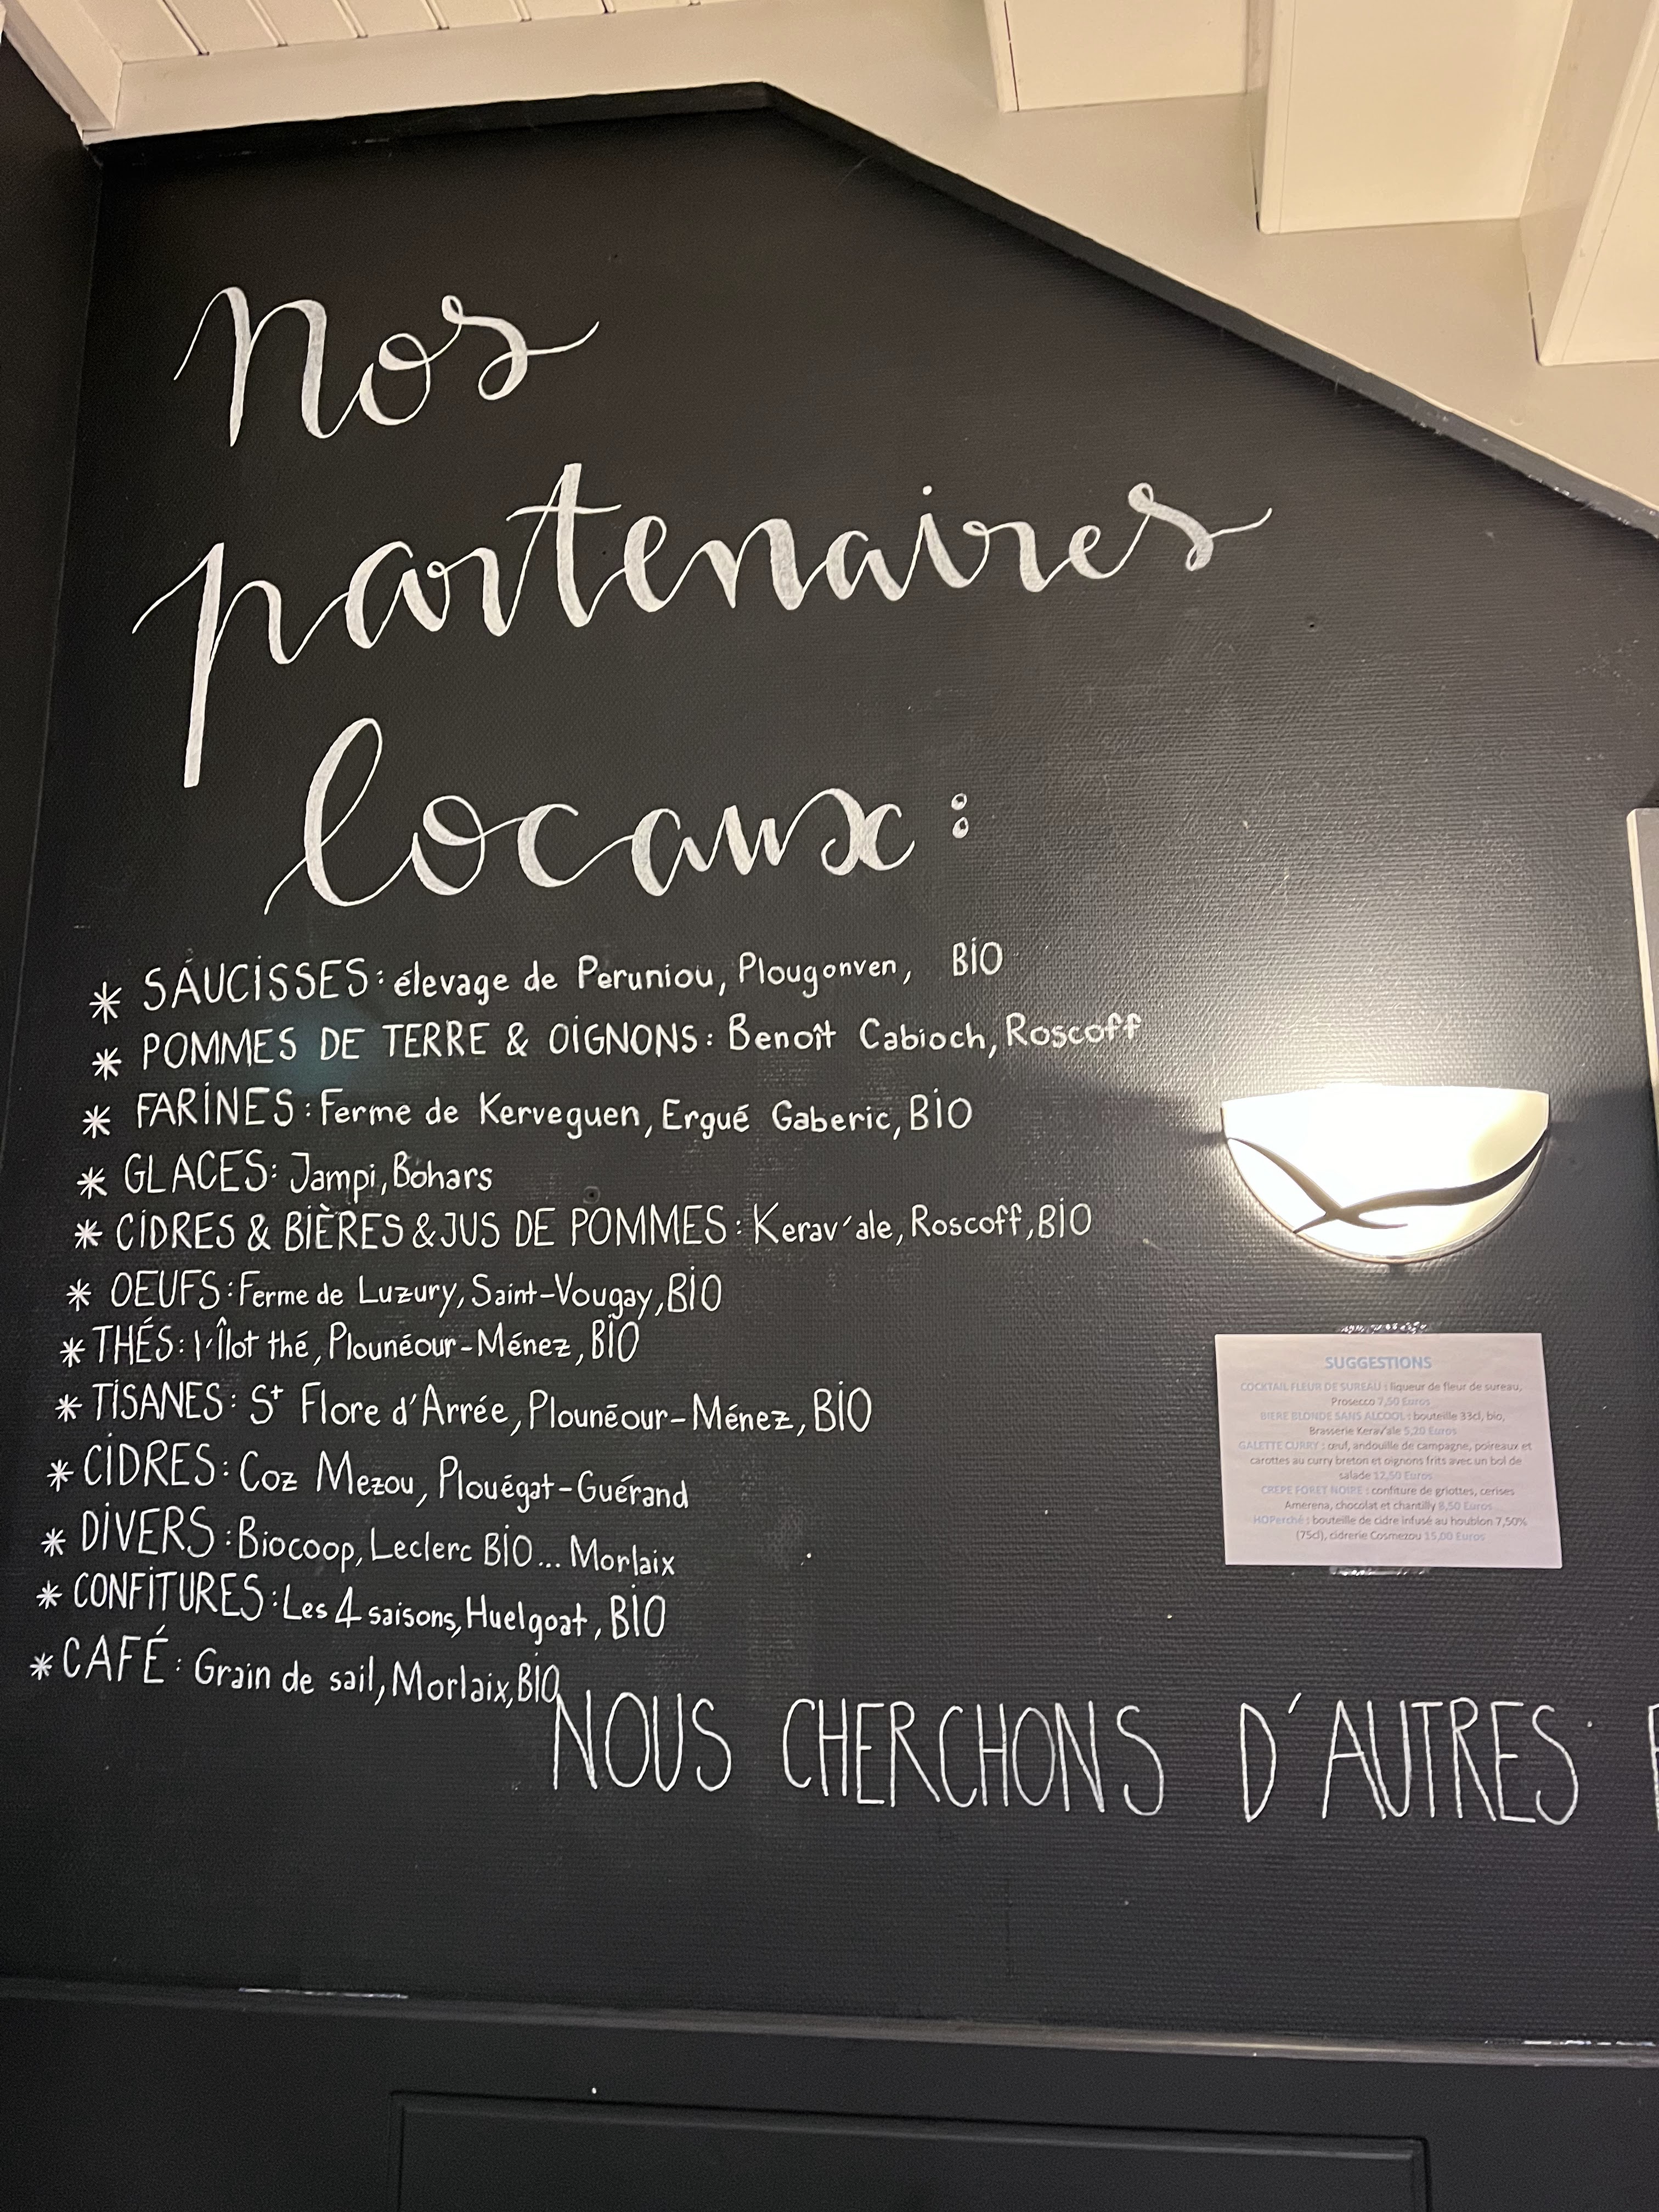 Nos
partenaires
locaux :
* SAUCISSES : élevage de Peruniou, Plougonven, BIO
* POMMES DE TERRE & OIGNONS : Benoît Cabioch, Roscoff
* FARINES : Ferme de Kerveguen, Ergué Gaberic, BIO
* GLACES : Jampi, Bohars
* CIDRES & BIÈRES & JUS DE POMMES : Kerav'ale, Roscoff, BIO
* OEUFS : Ferme de Luzury, Saint-Vougay, BIO
* THÉS : l'Îlot thé, Plounéour-Ménez, BIO
* TISANES : St Flore d'Arrée, Plounéour-Ménez, BIO
* CIDRES : Coz Mezou, Plouégat-Guérand
* DIVERS : Biocoop, Leclerc BIO... Morlaix
* CONFITURES : Les 4 saisons, Huelgoat, BIO
* CAFÉ : Grain de sail, Morlaix, BIO
NOUS CHERCHONS D'AUTRES
SUGGESTIONS
COCKTAIL FLEUR DE SUREAU : liqueur de fleur de sureau,
Prosecco 7,50 Euros
BIERE BLONDE SANS ALCOOL : bouteille 33cl, bio,
Brasserie Kerav'ale 5,20 Euros
GALETTE CURRY : œuf, andouille de campagne, poireaux et
carottes au curry breton et oignons frits avec un bol de
salade 12,50 Euros
CREPE FORET NOIRE : confiture de griottes, cerises
Amerena, chocolat et chantilly 8,50 Euros
HOPerché : bouteille de cidre infusé au houblon 7,50%
(75cl), cidrerie Cosmezou 15,00 Euros